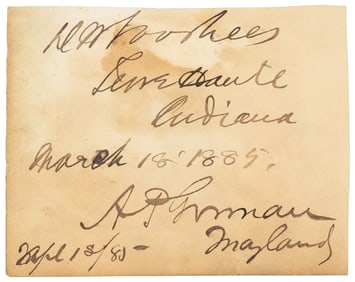 D W Voorhees
Terre Haute
Indiana
March 18' 1885.
A P Gorman
Maryland
18/85 -